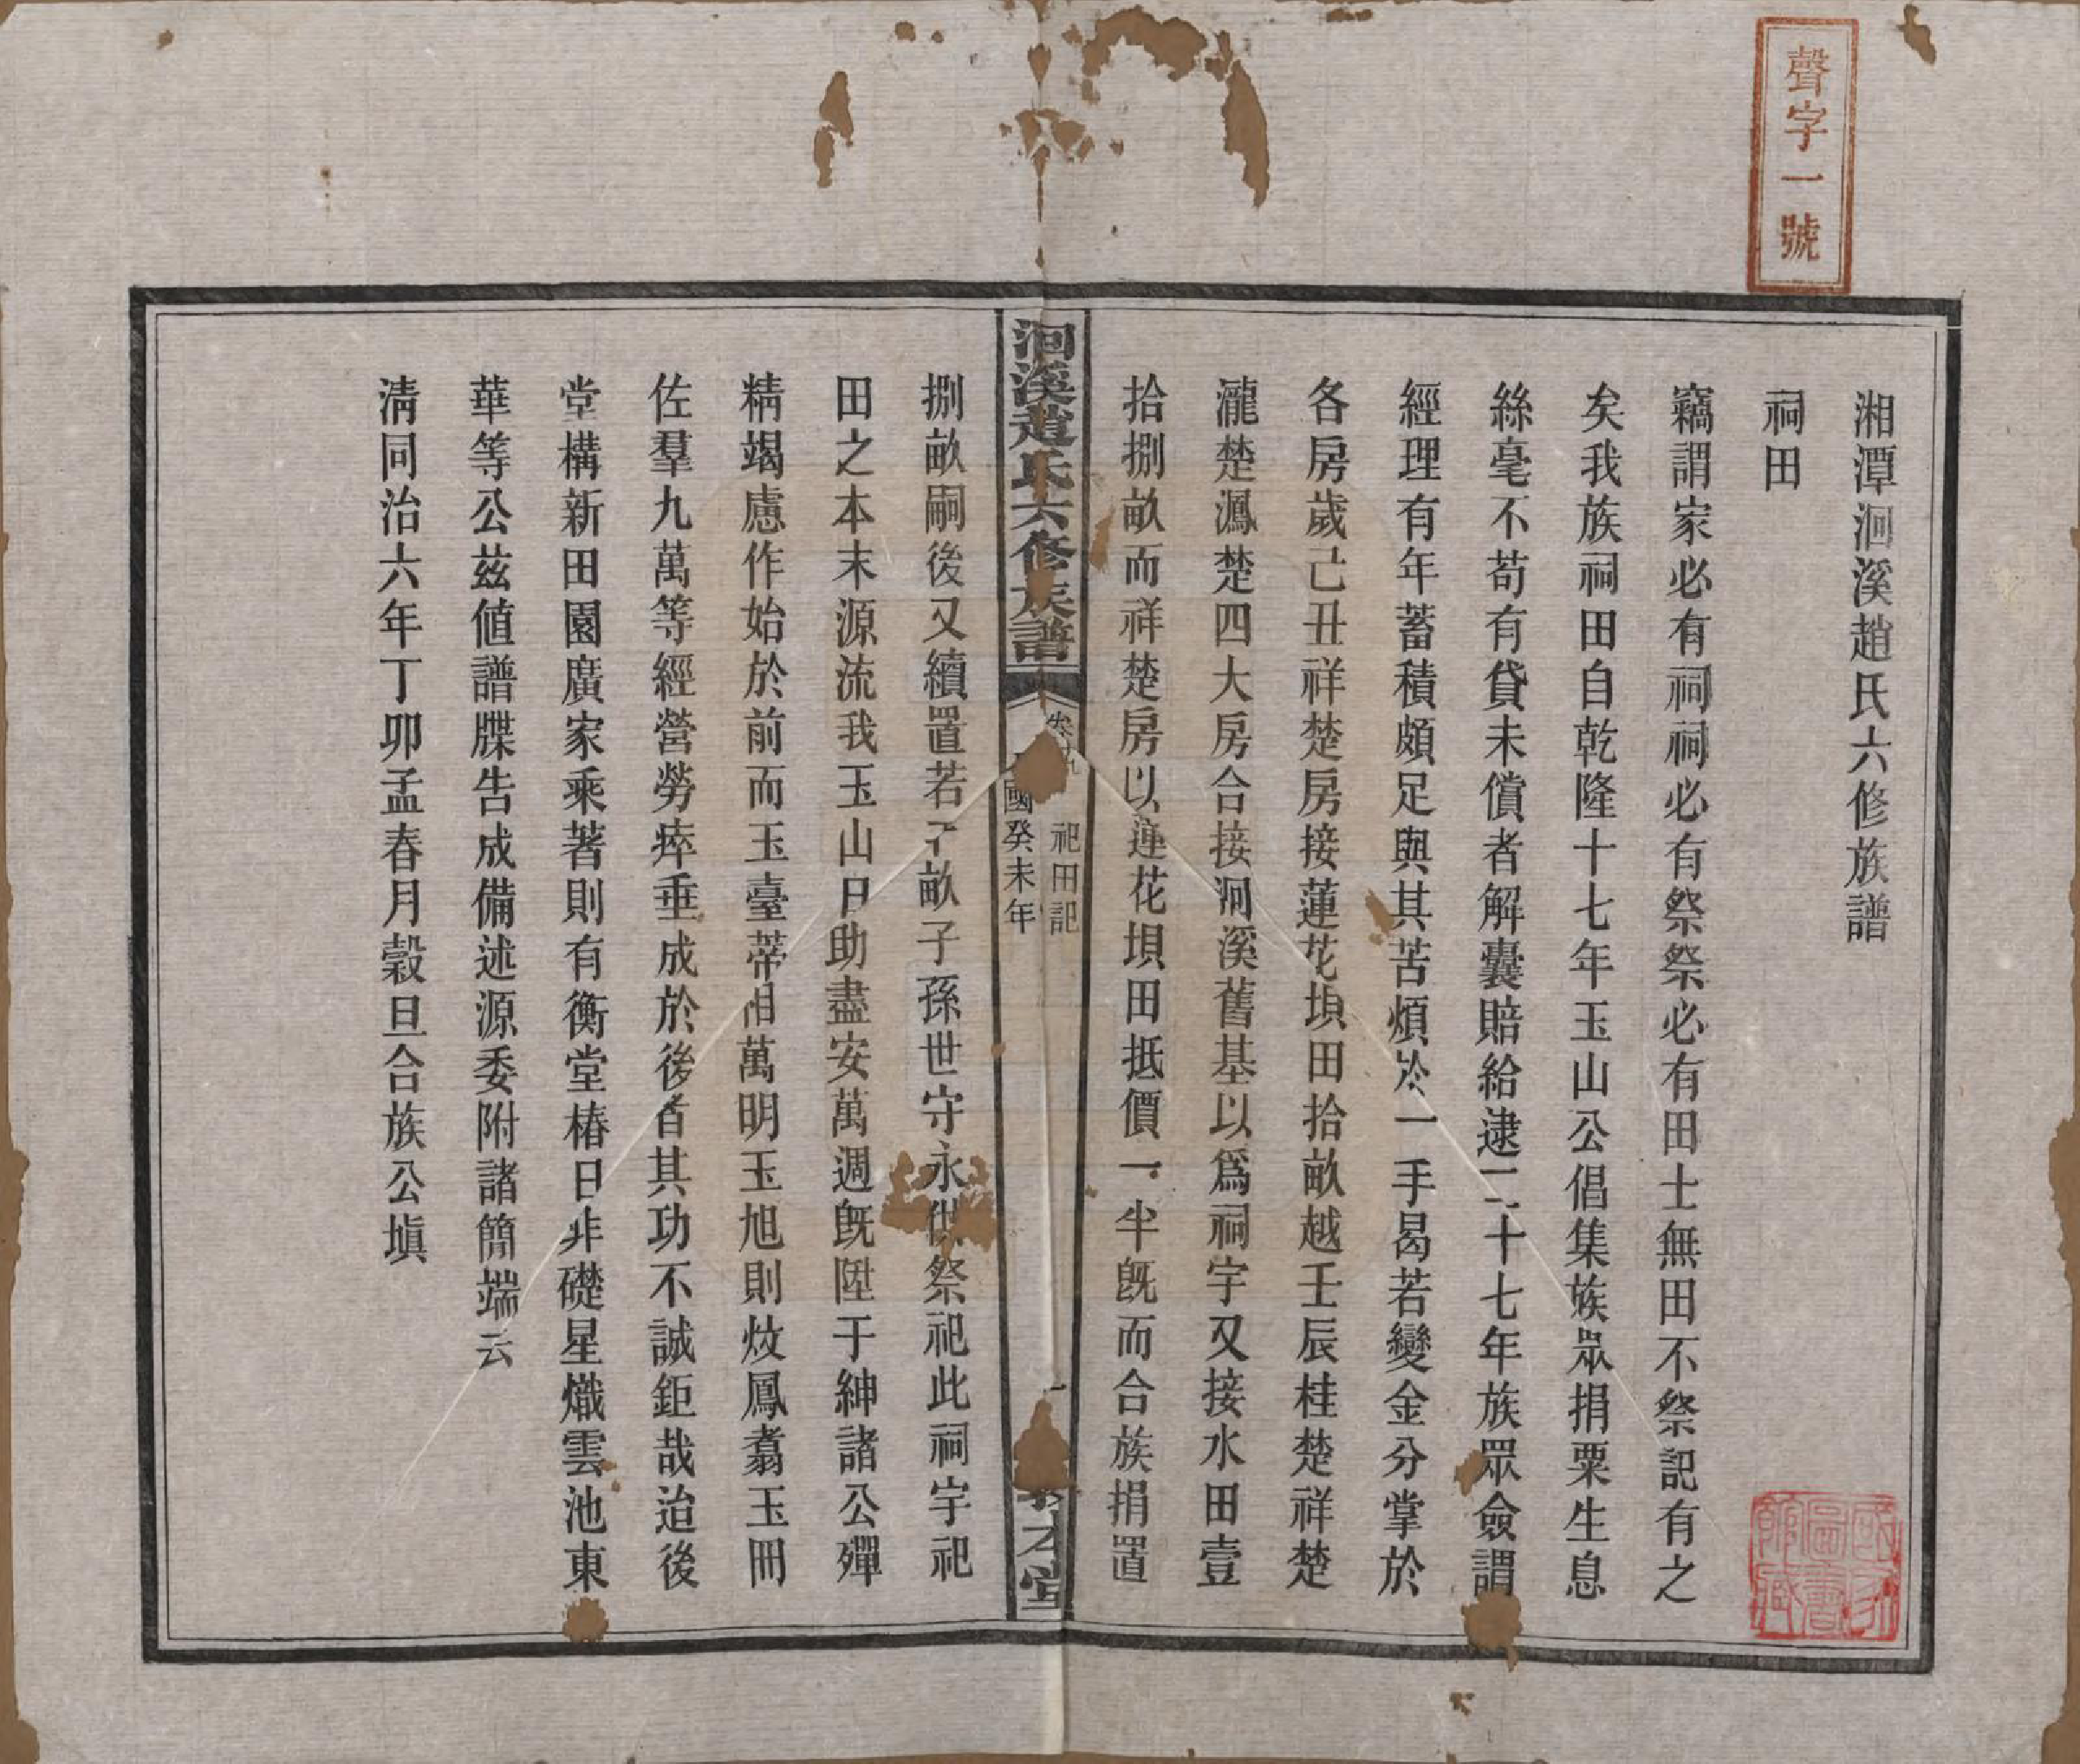 聲字一號
湘潭洄溪趙氏六修族譜
祠田
竊謂家必有祠祠必有祭祭必有田士無田不祭記有之
矣我族祠田自乾隆十七年玉山公倡集族眾捐粟生息
絲毫不苟有貸未償者解囊賠給逮二十七年族眾僉謂
經理有年蓄積頗足與其苦煩於一手曷若變金分掌於
各房歲己丑祥楚房接蓮花垻田拾畝越壬辰桂楚祥楚
瀧楚鳳楚四大房合接洄溪舊基以爲祠宇又接水田壹
拾捌畝而祥楚房以蓮花垻田抵價一半旣而合族捐置
洄溪趙氏六修族譜
卷十九
祀田記
一
國癸未年
本堂
捌畝嗣後又續置若干畝子孫世守永供祭祀此祠宇祀
田之本末源流我玉山日助盡安萬週旣陞于紳諸公殫
精竭慮作始於前而玉臺蒂相萬明玉旭則炆鳳翥玉冊
佐羣九萬等經營勞瘁垂成於後者其功不誠鉅哉迨後
堂構新田園廣家乘著則有衡堂椿日非礎星熾雲池東
華等公茲値譜牒告成備述源委附諸簡端云
淸同治六年丁卯孟春月穀旦合族公塡